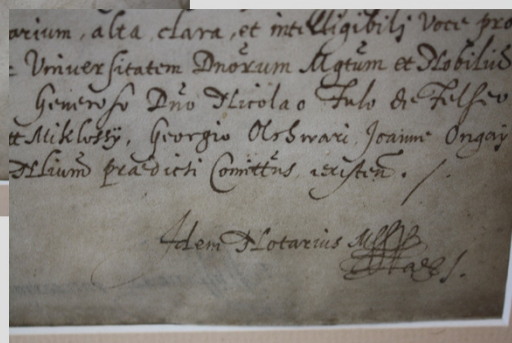 arium, alta clara, et intelligibili voce pro
Universitatem Dnorum Mgtum et Nobiliu
Generoso Dno Nicolao Fulo de Felseo
Miklossÿ, Georgio Olchwari, Joanne Ongaÿ
Nlium praedicti Comittus existen.
Idem Notarius